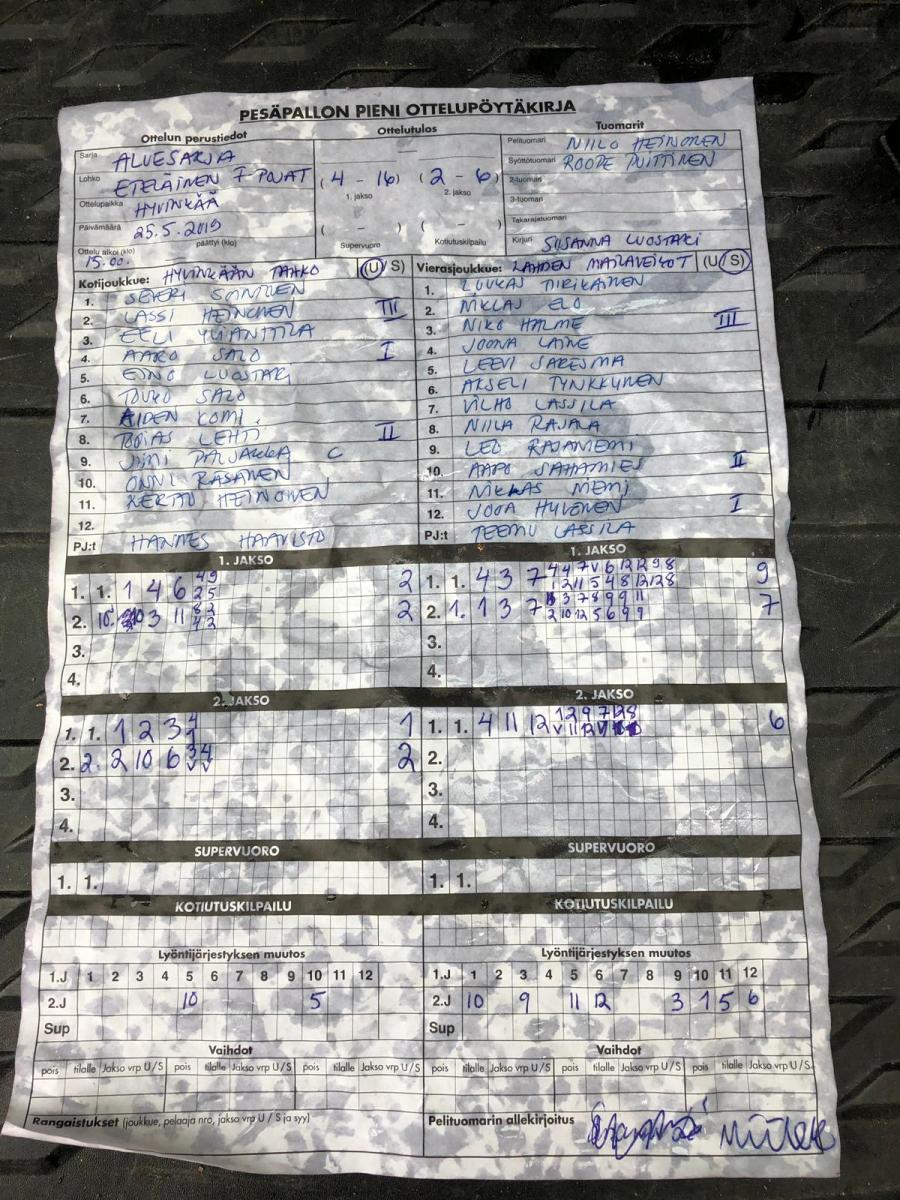 PESÄPALLON PIENI OTTELUPÖYTÄKIRJA
Ottelun perustiedot
Sarja ALUESARJA
Lohko ETELÄINEN 7 POJAT
Ottelupaikka HYVINKÄÄ
Päivämäärä 25.5.2019
Ottelu alkoi (klo) päättyi (klo)
15.00.
Ottelutulos
(4 - 16) (2 - 6)
1. jakso 2. jakso
( - ) ( - )
Supervuoro Kotiutuskilpailu
Tuomarit
Pelituomari NIILO HEINONEN
Syöttötuomari ROOPE PUITTINEN
2-tuomari
3-tuomari
Takarajatuomari
Kirjuri SUSANNA LUOSTARI
Kotijoukkue: HYVINKÄÄN TAHKO (U/S)
1. SEVERI SOININEN
2. LASSI HEINONEN III
3. EELI YLIANTTILA
4. AARO SALO I
5. EINO LUOSTARI
6. TOUKO SALO
7. AIDEN KOMI
8. TOBIAS LEHTI II
9. C
10. ONNI RÄSÄNEN
11. KERTTU HEINONEN
12.
PJ:t HANNES HAAVISTO
Vierasjoukkue: LAHDEN MAILAVEIKOT (U/S)
1. LUUKAS TIRIKAINEN
2. NIKLAS ELO
3. NIKO HALME III
4. JOONA LAINE
5. LEEVI SARESMA
6. AKSELI TYNKKYNEN
7. VILHO LASSILA
8. NIILA RAJALA
9. LEO RAJANIEMI
10. AAPO SAHAMIES II
11. NIKLAS
12. JOOA HYVÖNEN I
PJ:t TEEMU LASSILA
1. JAKSO
1. 1. 1 4 6 49 2
25
2. 10. 3 11 82 2
42
3.
4.
1. JAKSO
1. 1. 4 3 7 4 4 7 V 6 12 12 9 8 9
1 2 11 5 4 8 12 12 8
2. 1. 1 3 7 3 7 8 9 9 11 7
2 10 12 5 6 9 9
3.
4.
2. JAKSO
1. 1. 1 2 3 4 1
1
2. 2. 2 10 6 3 4 2
V V
3.
4.
2. JAKSO
1. 1. 4 11 12 1 2 9 7 12 8 6
V 11 12 V
2.
3.
4.
SUPERVUORO
1. 1.
SUPERVUORO
1. 1.
KOTIUTUSKILPAILU
KOTIUTUSKILPAILU
Lyöntijärjestyksen muutos
1.J 1 2 3 4 5 6 7 8 9 10 11 12
2.J 10 5
Sup
Lyöntijärjestyksen muutos
1.J 1 2 3 4 5 6 7 8 9 10 11 12
2.J 10 9 11 12 3 1 5 6
Sup
Vaihdot
pois tilalle Jakso vrp U/S pois tilalle Jakso vrp U/S pois tilalle Jakso vrp U/S
Vaihdot
pois tilalle Jakso vrp U/S pois tilalle Jakso vrp U/S pois tilalle Jakso vrp U/S
Rangaistukset (joukkue, pelaaja nro, jakso vrp U / S ja syy)
Pelituomarin allekirjoitus